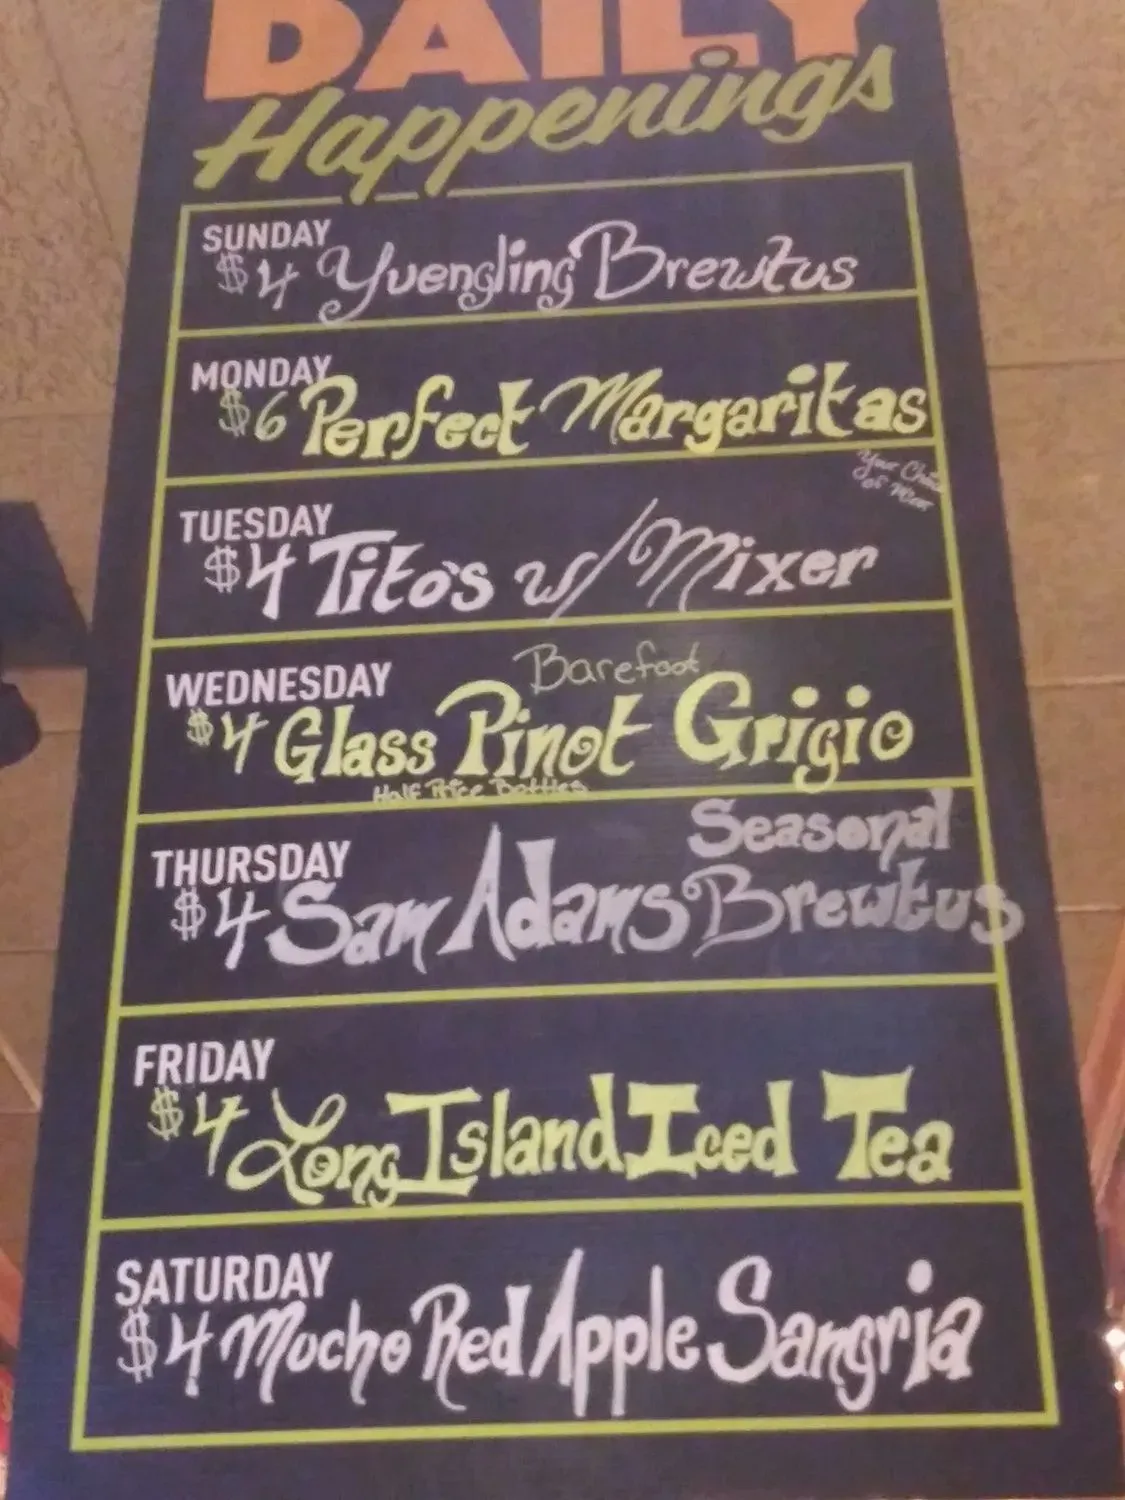 DAILY
Happenings
SUNDAY
$4 Yuengling Brewtus
MONDAY
$6 Perfect Margaritas
TUESDAY
Your Choice
of
$4 Tito's w/Mixer
WEDNESDAY
Barefoot
$4 Glass Pinot Grigio
Half Price Bottles
THURSDAY
Seasonal
$4 Sam Adams Brewtus
FRIDAY
$4 Long Island Iced Tea
SATURDAY
$4 Mucho Red Apple Sangria